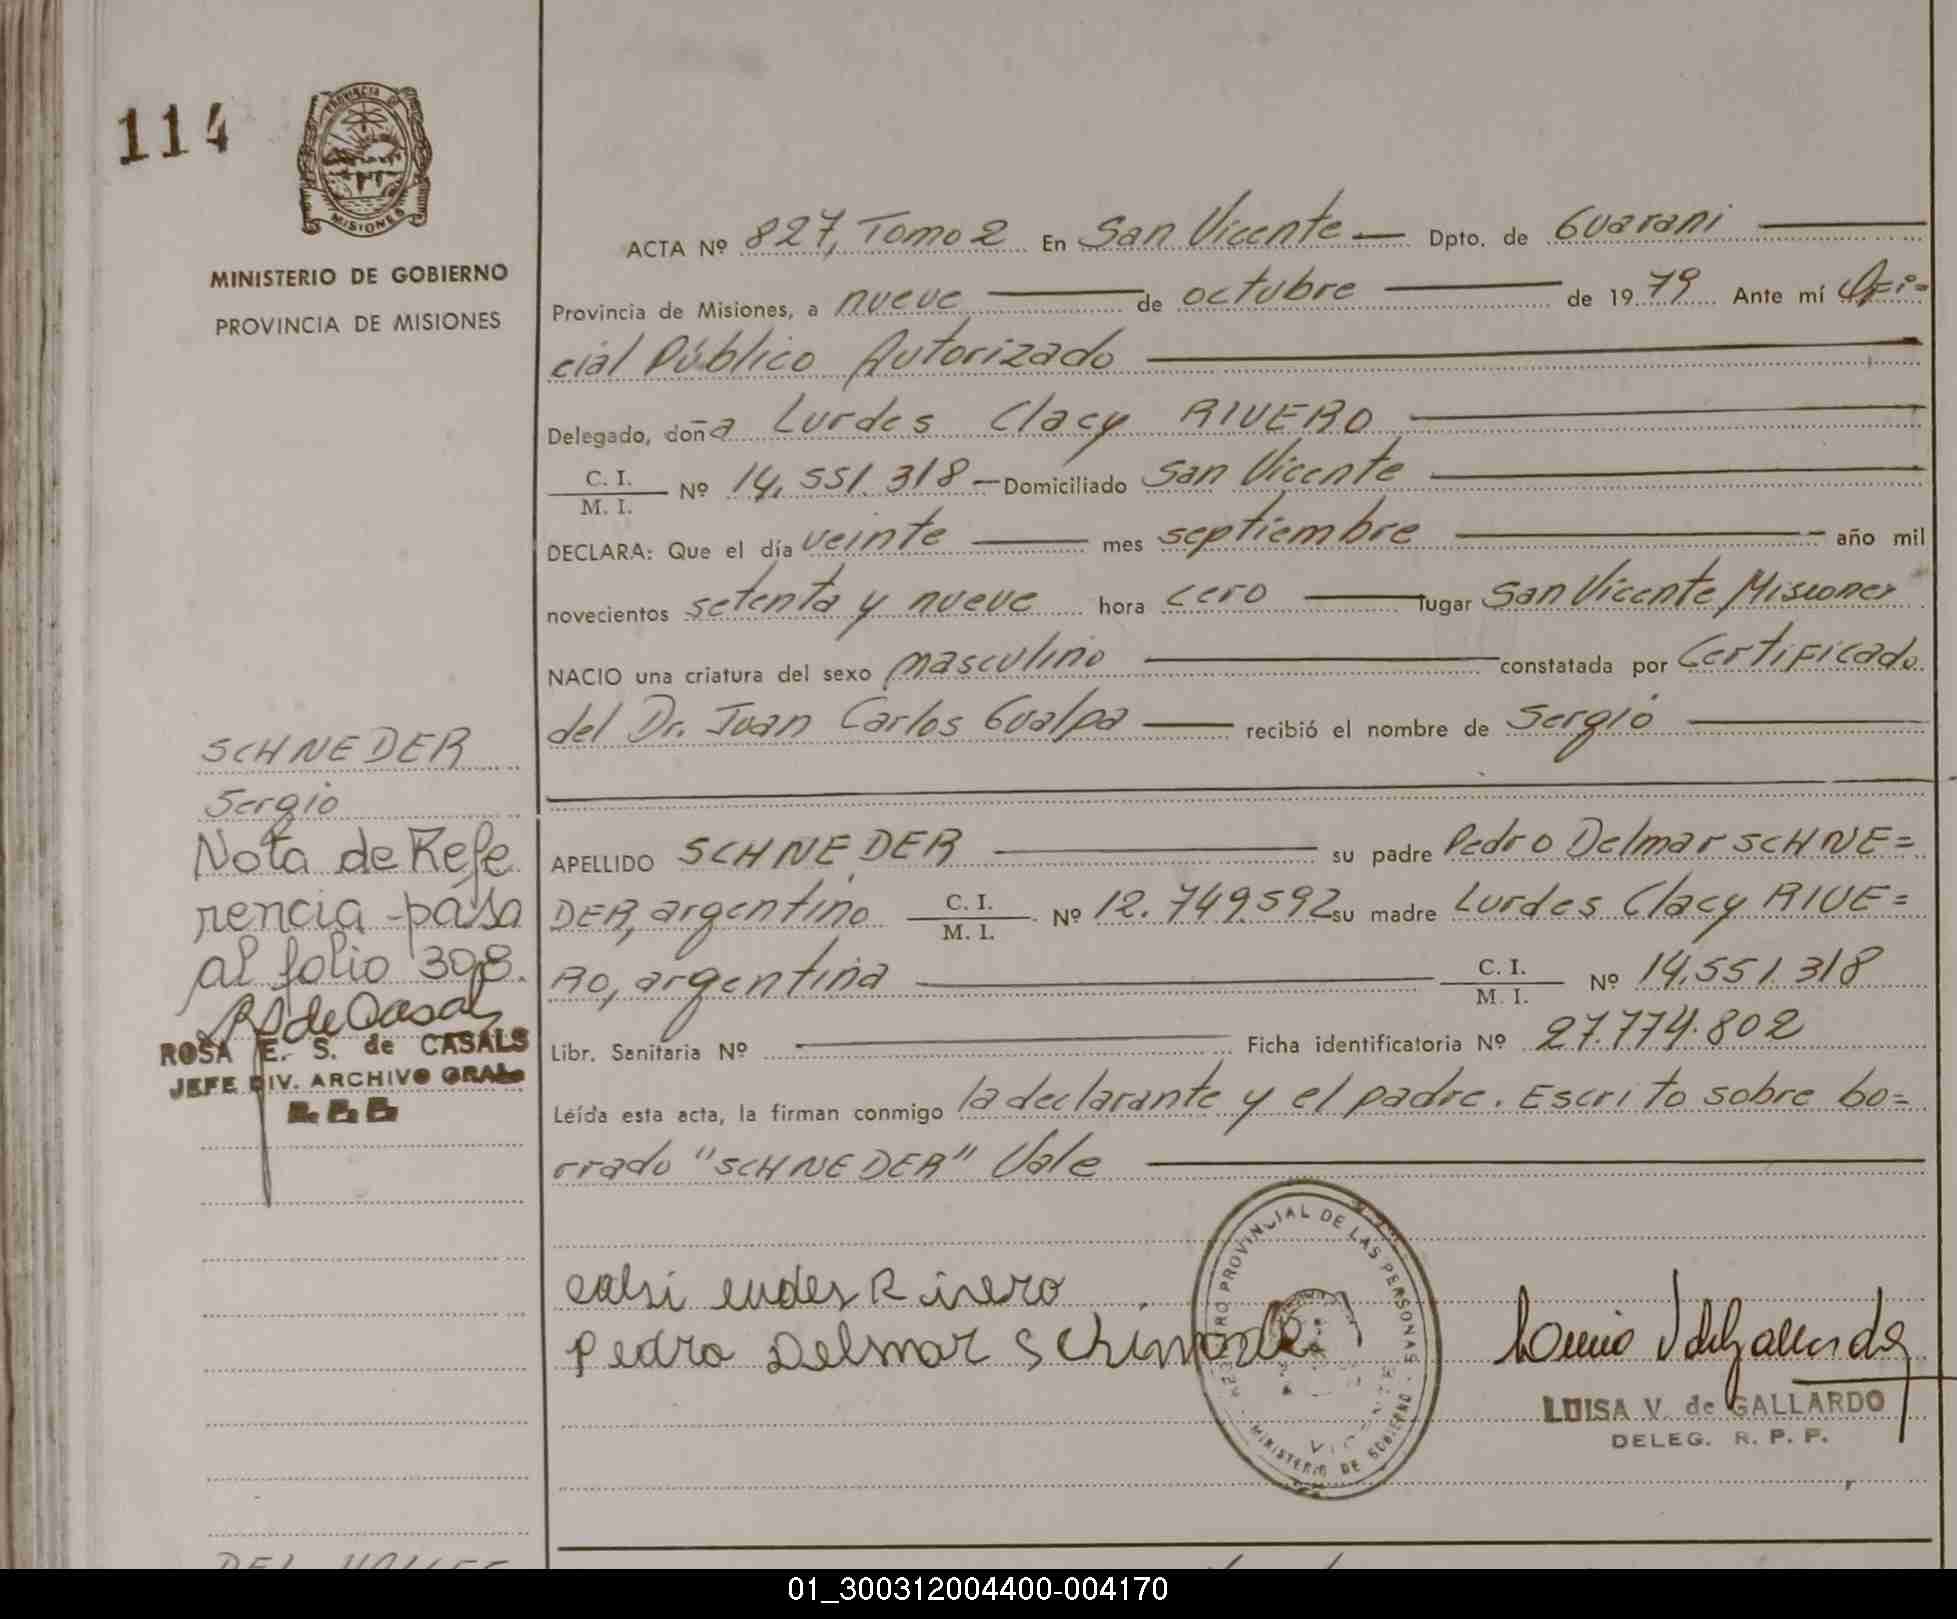 114
PROVINCIA DE
MISIONES
MINISTERIO DE GOBIERNO
PROVINCIA DE MISIONES
ACTA Nº 827, Tomo 2 En San Vicente — Dpto. de Guarani
Provincia de Misiones, a nueve de octubre de 1979 Ante mí Ofi=
cial Público Autorizado
Delegado, doña Lurdes Clacy RIVERO
C. I.
M. I. Nº 14.551.318 — Domiciliado San Vicente
DECLARA: Que el día veinte mes septiembre año mil
novecientos setenta y nueve hora cero lugar San Vicente Misiones
NACIO una criatura del sexo masculino constatada por Certificado
del Dr. Juan Carlos Gualpa recibió el nombre de Sergio
SCHNEDER
Sergio
Nota de Refe
rencia pasa
al folio 308.
RS de Casals
ROSA E. S. de CASALS
JEFE DIV. ARCHIVO GRAL.
APELLIDO SCHNEDER su padre Pedro Delmar SCHNE=
DER, argentino C. I.
M. I. Nº 12.749.592 su madre Lurdes Clacy RIVE=
RO, argentina C. I.
M. I. Nº 14.551.318
Libr. Sanitaria Nº Ficha identificatoria Nº 27.774.802
Leída esta acta, la firman conmigo la declarante y el padre. Escrito sobre bo=
rrado "SCHNEDER" Vale
Rivero
Pedro Delmar
PROVINCIAL DE LAS PERSONAS
MINISTERIO DE GOBIERNO
LUISA V. de GALLARDO
DELEG. R. P. P.
01_300312004400-004170